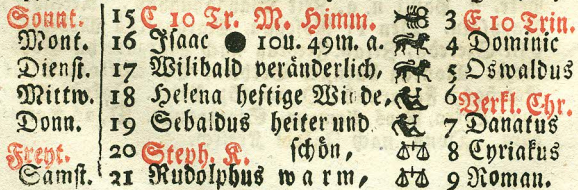 Sonnt. 15 C 10 Tr. M. Himm. 3 E 10 Trin.
Mont. 16 Isaac ● 10u. 49m. a. 4 Dominic
Dienst. 17 Wilibald veränderlich, 5 Oswaldus
Mittw. 18 Helena heftige Winde, 6 Verkl. Chr.
Donn. 19 Sebaldus heiter und 7 Danatus
Freyt. 20 Steph. K. schön, 8 Cyriakus
Samst. 21 Rudolphus warm, 9 Roman.